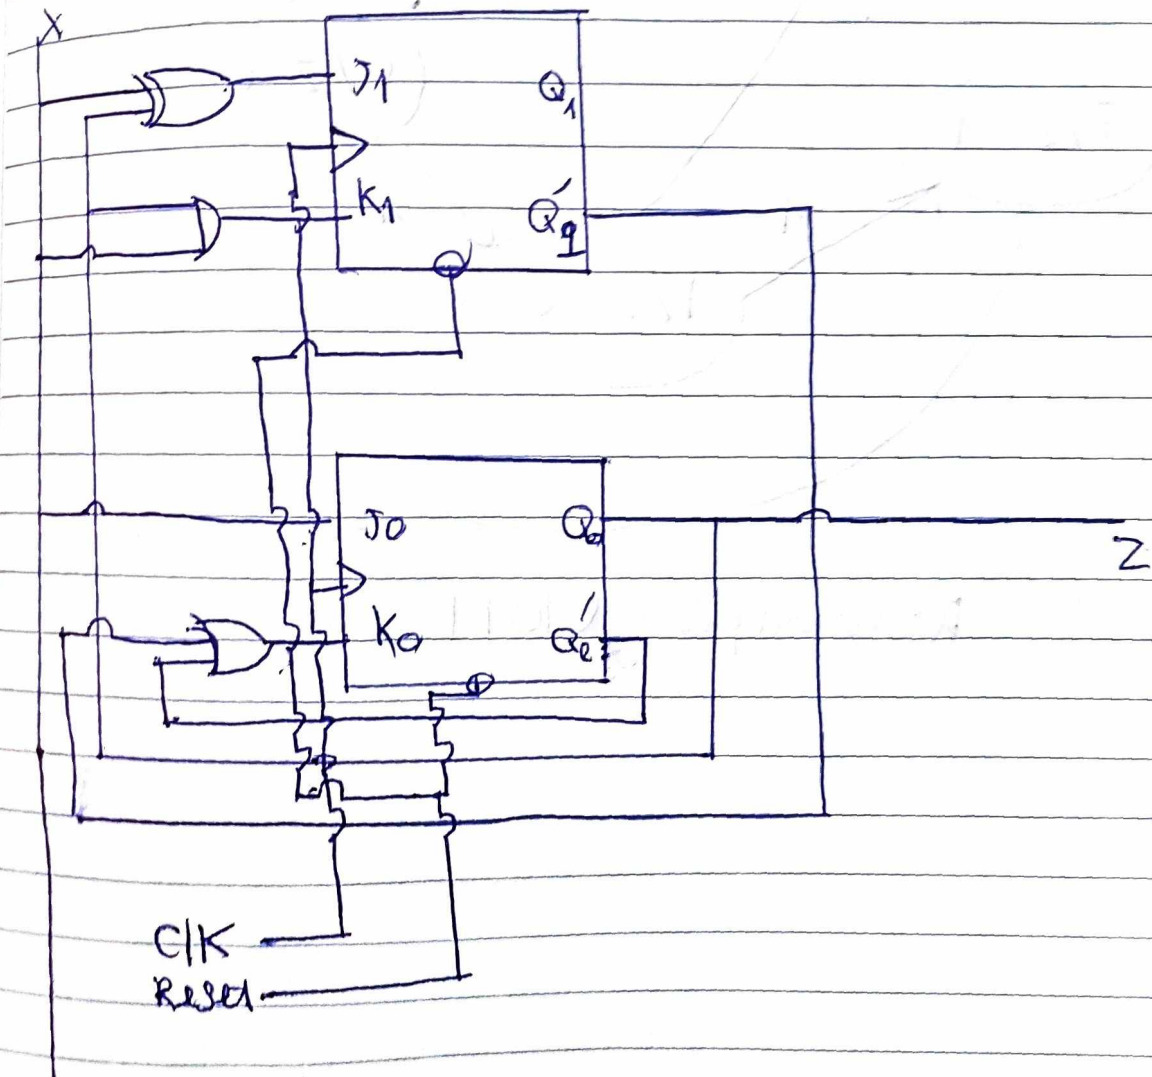 X
J1
Q1
K1
Q'1
J0
Q0
Z
K0
Q'0
ClK
Reset